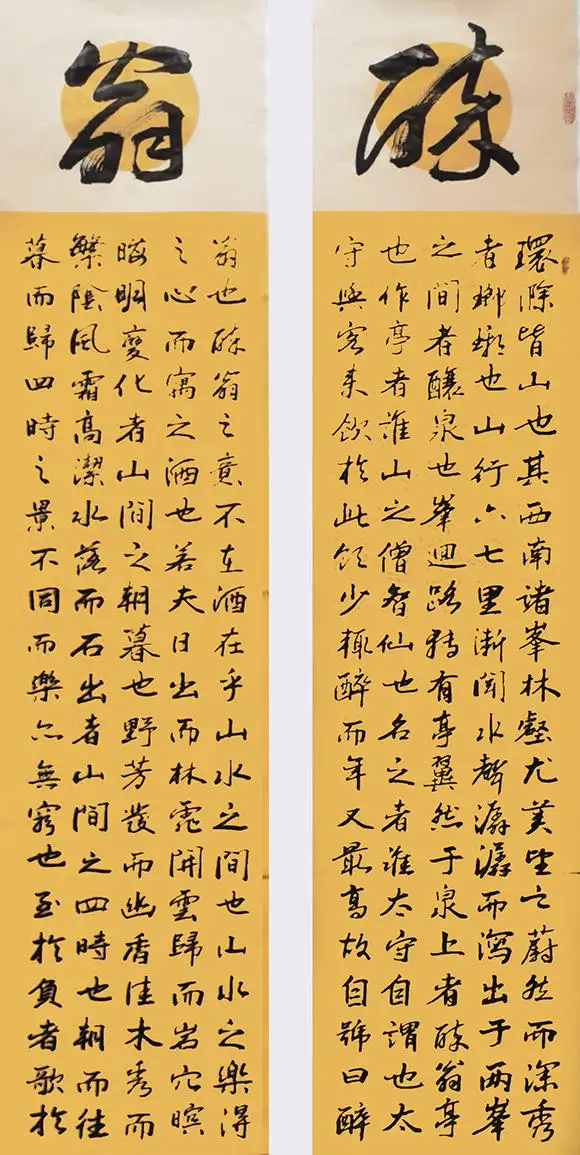 醉
環滁皆山也其西南諸峯林壑尤美望之蔚然而深秀
者瑯琊也山行六七里漸聞水聲潺潺而瀉出于兩峯
之間者釀泉也峯迴路轉有亭翼然于泉上者醉翁亭
也作亭者誰山之僧智仙也名之者誰太守自謂也太
守與客來飲於此飲少輒醉而年又最高故自號曰醉
翁
翁也醉翁之意不在酒在乎山水之間也山水之樂得
之心而寓之酒也若夫日出而林霏開雲歸而岩穴暝
晦明變化者山間之朝暮也野芳發而幽香佳木秀而
繁陰風霜高潔水落而石出者山間之四時也朝而往
暮而歸四時之景不同而樂亦無窮也至於負者歌於